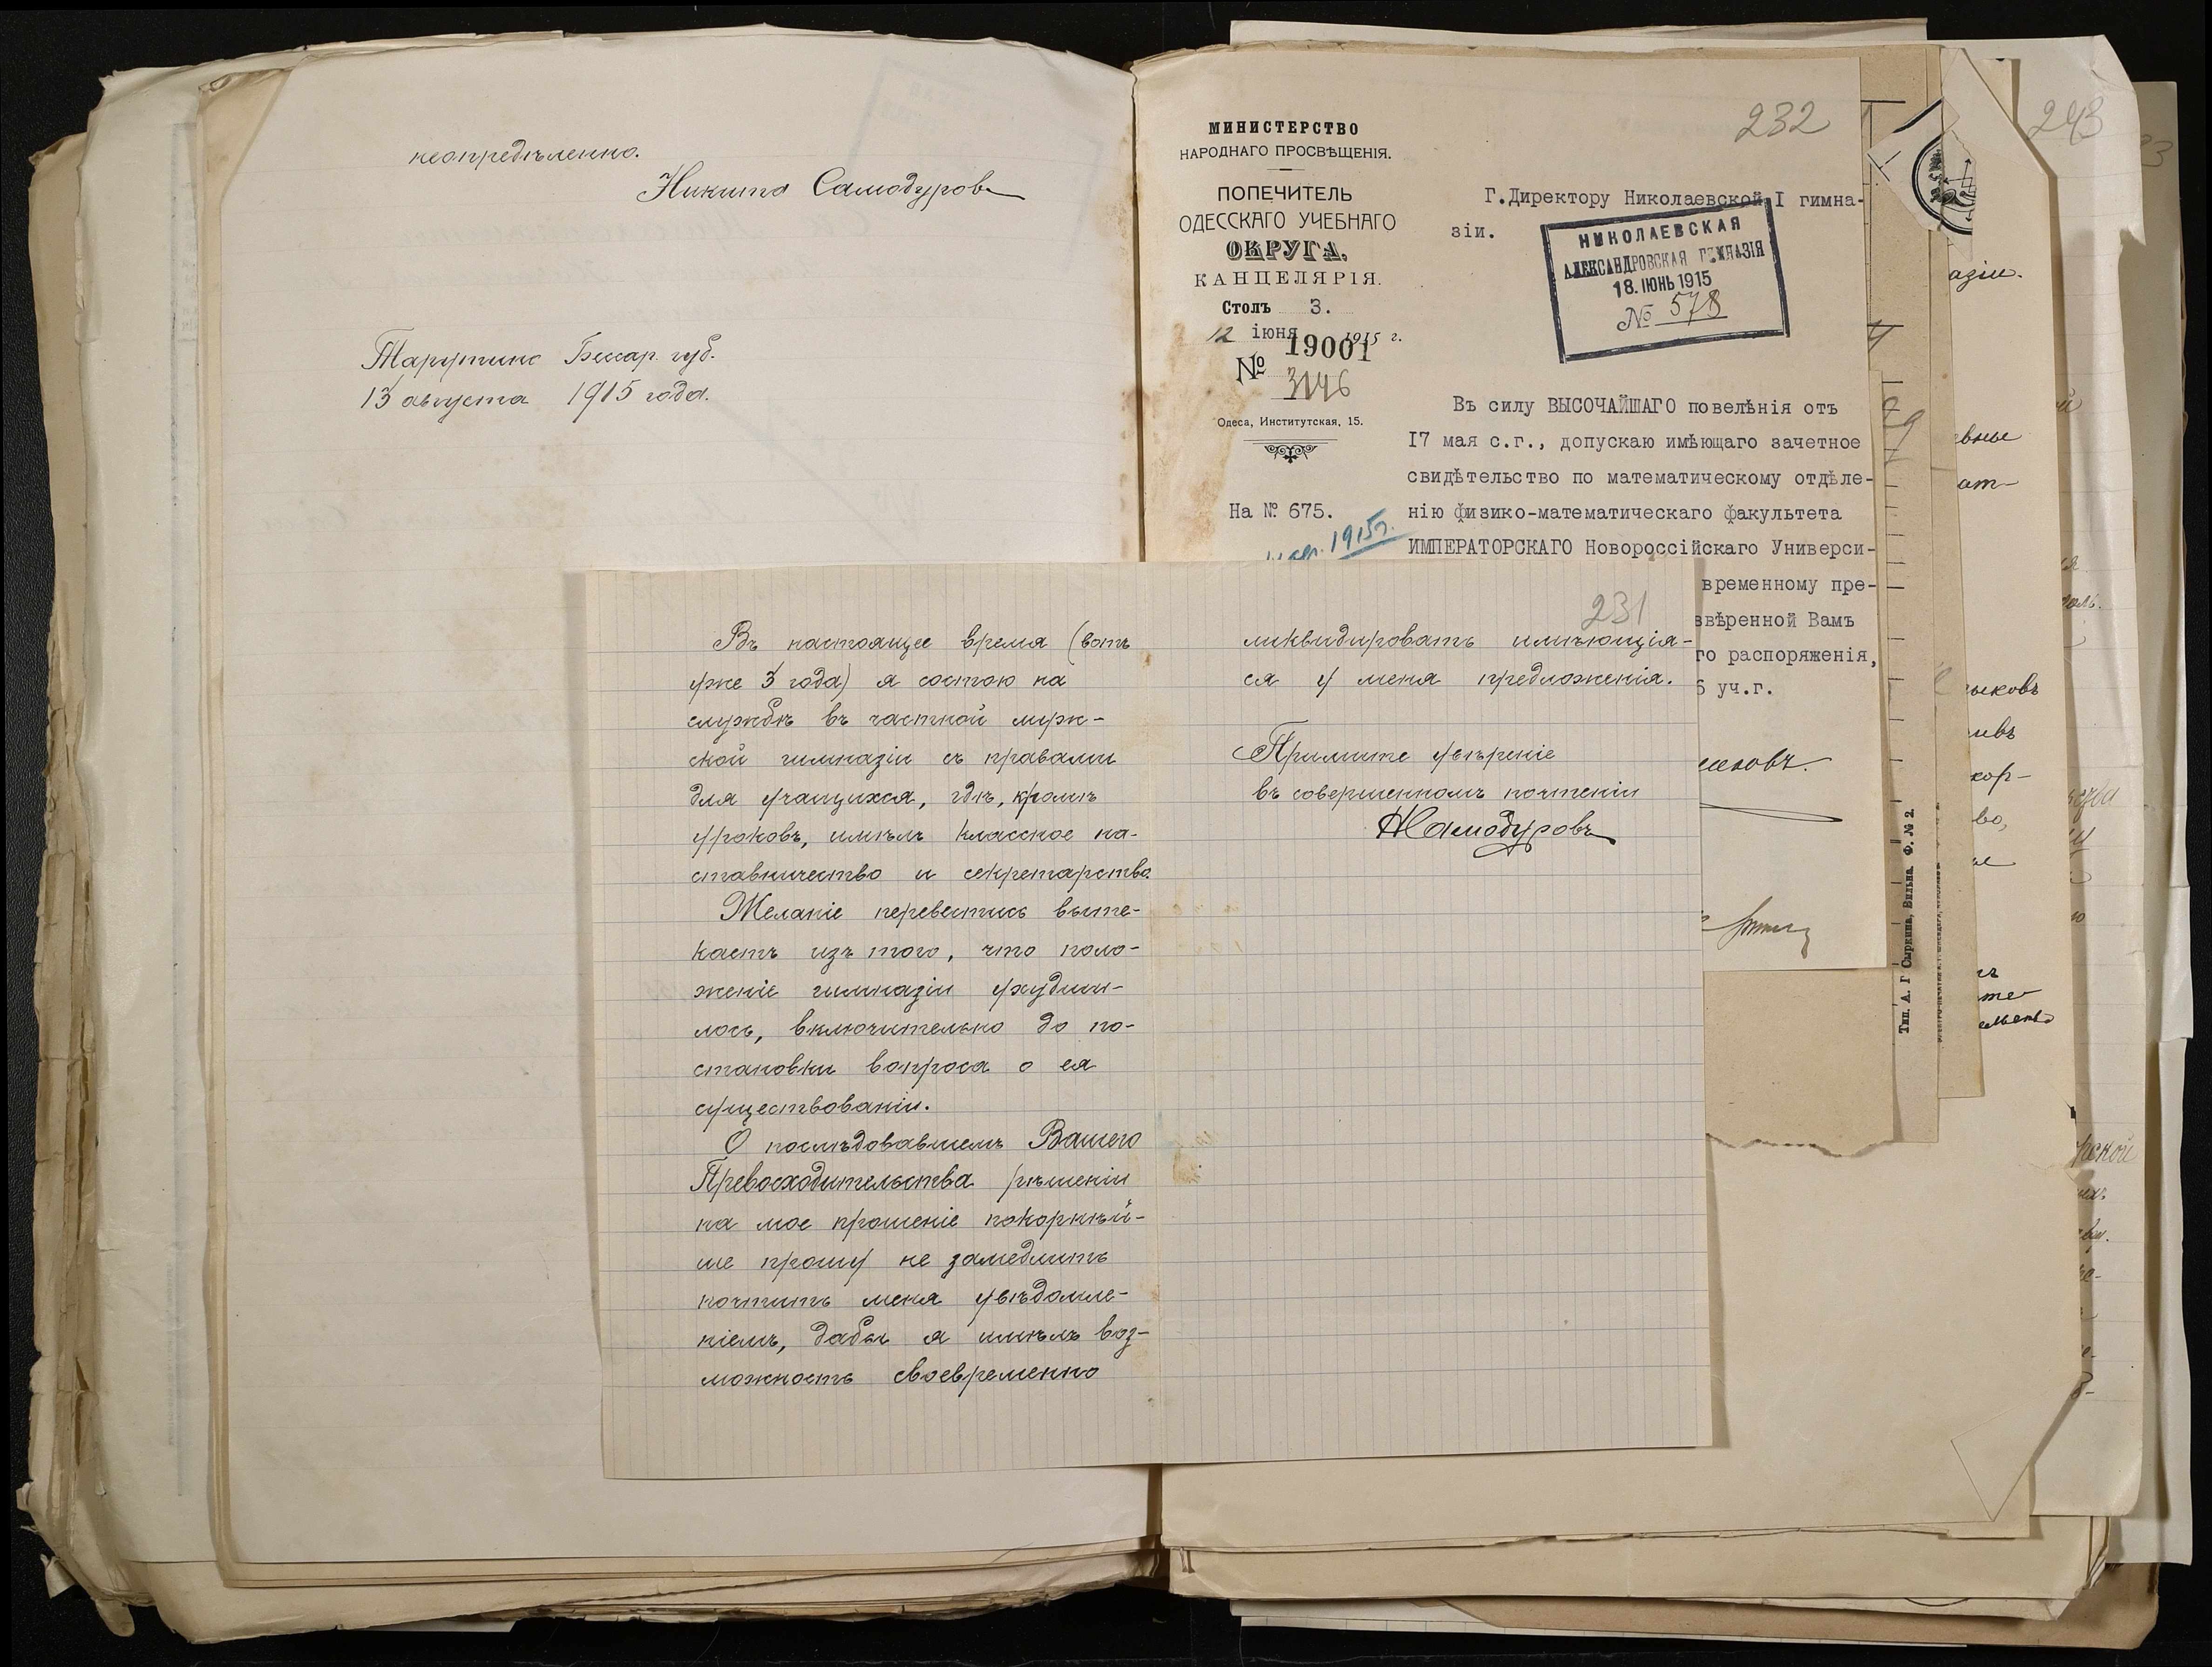 неопредѣленно.
Никита Самодуров
Тарутино Бессар. губ.
13 августа 1915 года.
232
МИНИСТЕРСТВО
НАРОДНАГО ПРОСВѢЩЕНІЯ.
ПОПЕЧИТЕЛЬ
ОДЕССКАГО УЧЕБНАГО
ОКРУГА.
КАНЦЕЛЯРІЯ.
Столъ 3.
12 іюня 1915 г.
№ 19001
3146
Одеса, Институтская, 15.
На № 675.
1915г.
Г.Директору Николаевской I гимна-
зіи.
НИКОЛАЕВСКАЯ
АЛЕКСАНДРОВСКАЯ ГИМНАЗІЯ
18. ІЮНЬ 1915
№ 578
Въ силу ВЫСОЧАЙШАГО повелѣнія отъ
17 мая с.г., допускаю имѣющаго зачетное
свидѣтельство по математическому отдѣле-
нію физико-математическаго факультета
ИМПЕРАТОРСКАГО Новороссійскаго Универси-
временному пре-
ввѣренной Вамъ
го распоряженія,
6 уч.г.
Въ настоящее время (вотъ
уже 3 года) я состою на
службѣ въ частной муж-
ской гимназіи съ правами
для учащихся, гдѣ, кромѣ
уроковъ, имѣлъ классное на-
ставничество и секретарство.
Желаніе перевестись выте-
каетъ изъ того, что поло-
женіе гимназіи ухудши-
лось, включительно до по-
становки вопроса о ея
существованіи.
О послѣдовавшемъ Вашего
Превосходительства рѣшеніи
на мое прошеніе покорнѣй-
ше прошу не замедлить
почтить меня увѣдомле-
ніемъ, дабы я имѣлъ воз-
можность своевременно
231
ликвидировать имѣющія-
ся у меня предложенія.
Примите увѣреніе
въ совершенномъ почтеніи
НСамодуровъ
Тип. А. Г. Сыркина, Вильна. Ф. № 2.
243
азіи.